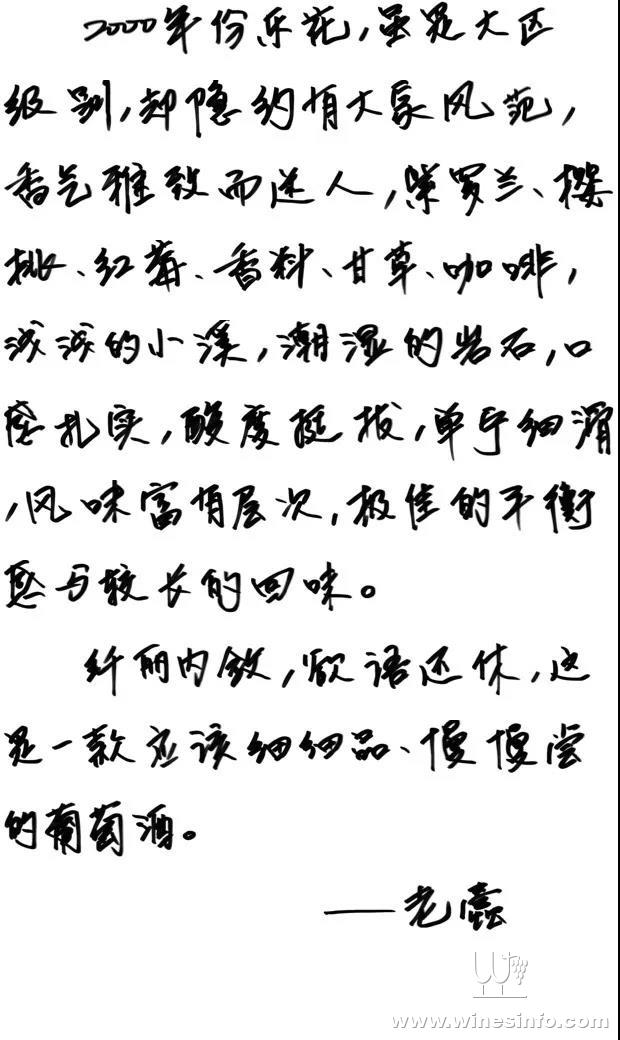 2000年份乐花,虽是大区
级别,却隐约有大家风范,
香气雅致而迷人,紫罗兰、樱
桃、红莓、香料、甘草、咖啡,
浅浅的小溪,潮湿的岩石,口
感扎实,酸度挺拔,单宁细滑
,风味富有层次,极佳的平衡
感与较长的回味。
纤丽内敛,欲语还休,这
是一款应该细细品、慢慢尝
的葡萄酒。
——老
www.winesinfo.com